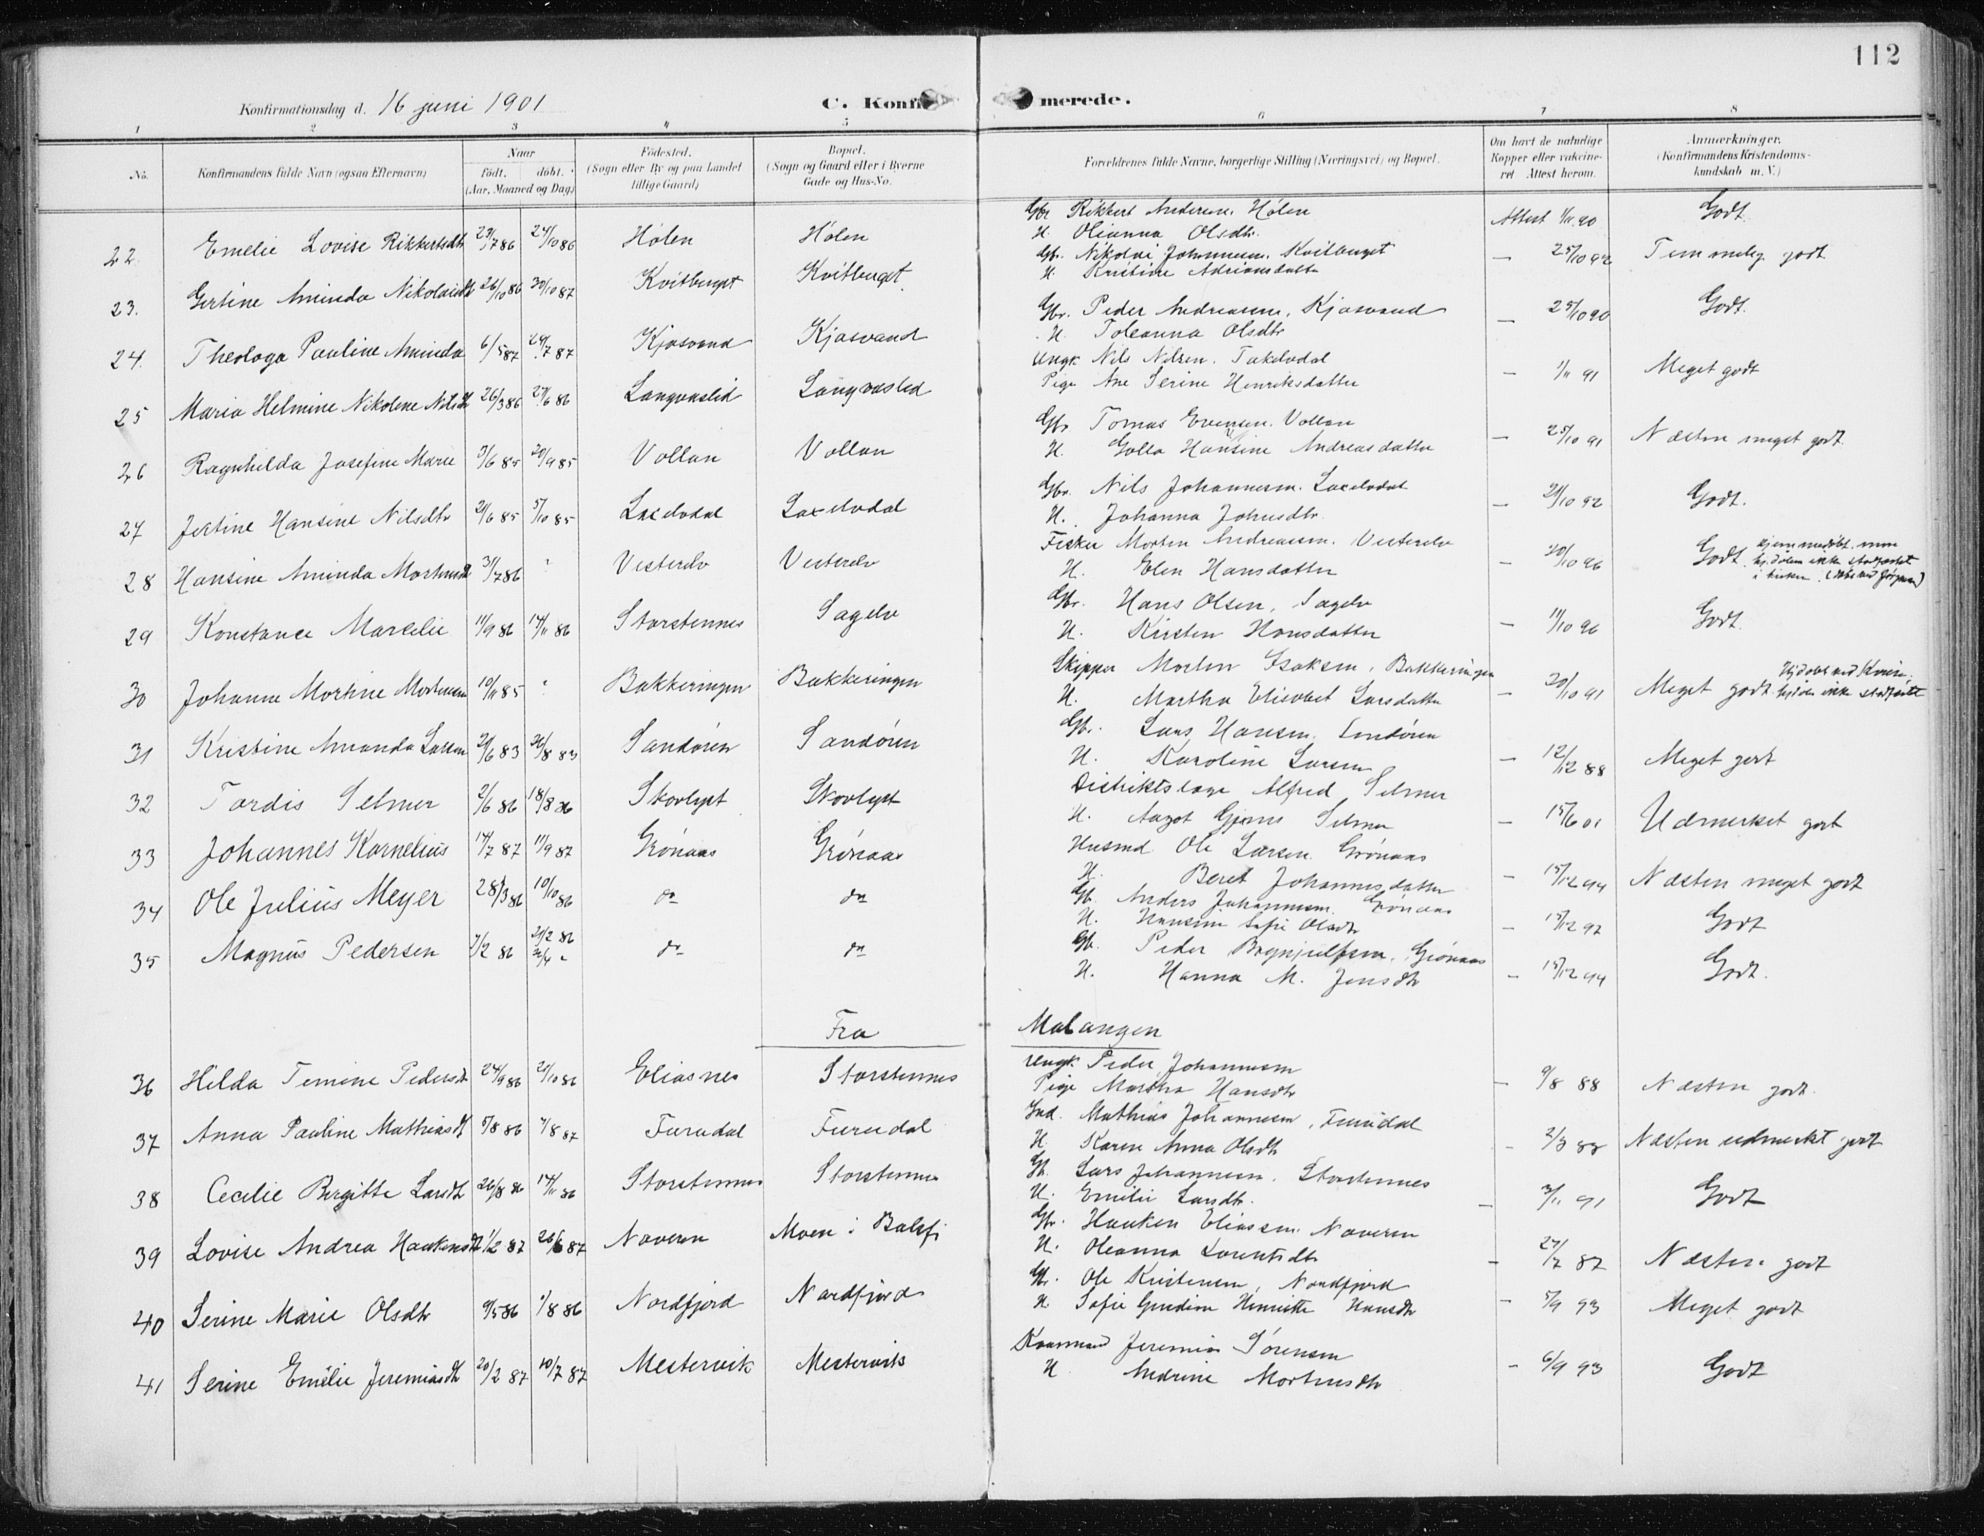 112
Konfirmationsdag d. 16 juni 1901 C. Konfirmerede.
1 2 3 4 5 6 7 8
No. Konfirmandens fulde Navn (ogsaa Efternavn) Naar født. døbt. (Aar, Maaned og Dag) Fødested. (Sogn eller By og paa Landet tillige Gaard) Bopæl. (Sogn og Gaard eller i Byerne Gade og Hus-No. Forældrenes fulde Navne, borgerlige Stilling (Næringsvei) og Bopæl. Om havt de naturlige Kopper eller vaccineret Attest herom. Anmærkninger. (Konfirmandens Kristendomskundskab m. V.)
22. Emelie Lovise Rikkertsdtr 23/7 86 24/10 86 Holen Holen Gbr Rikkert Andersen Holen Attest 1/11 90 Godt
H. Olianna Olsdtr.
23. Gertine Aminda Nikolaisdtr 26/10 86 30/10 87 Kvitberget Kvitberget. Gbr. Nikolai Johannesen Kvitberget — 25/10 92 Temmelig godt
H. Kristine Adriansdatter
24. Theologa Pauline Aminda 6/5 87 24/7 87 Kjosvand Kjosvand Gbr. Peder Andreasen, Kjosvand — 25/10 90 Godt.
H. Toleanna Olsdtr
25 Maria Helmine Nikoline Nilsdtr 26/3 86 27/6 86 Langvaslid Langvaslid Ungk Nils Nilsen. Takelvdal — 1/11 91 Meget godt
Pige Ane Serine Henriksdatter
26 Ragnhilda Josefine Marie 3/6 85 20/9 85 Vollan Vollan Gbr Tomas Evensen. Vollan — 25/10 91 Næsten meget godt
H. Golla Hansine Andreasdatter
27 Jertine Hansine Nilsdtr 21/6 85 5/10 85 Laxelvdal Laxelvdal Gbr. Nils Johannesen. Laxelvdal — 24/10 92 Godt.
H. Johanna Johnsdtr.
28 Hansine Aminda Mortensdtr 31/7 86 ? Vesterelv Vesterelv Fisker Morten Andreasen. Vesterelv — 20/10 96 Godt. hjemmedøbt, men hj.daaben ikke stadfæstet i kirken.
H. Elen Hansdatter
29 Konstance Marcelie 11/9 86 14/11 86 Storstennes Sagelv Gbr. Hans Olsen, Sagelv — 11/10 96 Godt.
H. Kirsten Hansdatter
30 Johanne Mortine Mortensen 10/11 85 ? Bakkeringen Bakkeringen Skipper Morten Isaksen, Bakkeringen — 20/10 91 Meget godt.
H. Martha Eliesbet Larsdatter
31 Kristine Amanda Larsen 21/6 83 26/8 83 Sandøren Sandøren Gbr. Lars Hansen Sandøren — 12/12 88 Meget godt
H. Karoline Larsen
32 Tordis Selmer 2/6 86 18/8 86 Skovlyst Skovlyst Distriktslæge Alfred Selmer — 15/6 01 Udmerket godt
H. Aagot Gjems Selmer
33 Johannes Kornelius 14/7 87 11/9 87 Grønaas Grønaas Husmd. Ole Larsen Grønaas — 15/12 94 Næsten meget godt
H. Beret Johannesdatter
34 Ole Julius Meyer 28/3 86 10/10 86 do do Gb. Anders Johannesen. Grønaas — 15/12 92 Godt
H. Hansine Sofie Olsdtr
35 Magnus Pedersen 7/2 86 21/2 86 do do Gb. Peder , Grønaas — 15/12 94 Godt.
H. Hanna M. Jensdtr
Fra Malangen
36 Hilda Temine Pedersdtr 24/9 86 21/10 86 Eliasnes Storstennes Ungk. Peder Johannesen — 9/8 88 Næsten godt.
Pige Martha Hansdtr
37 Anna Pauline Mathiasdtr 5/8 86 7/8 87 Furudal Furudal Gbd. Mathias Johannesen, Furudal — 2/3 88 Næsten udmerket godt
H. Karen Anna Olsdtr
38 Cecilie Birgitte Larsdtr 26/8 86 14/11 86 Storstennes Storstennes Gb. Lars Johannesen. Storstennes — 3/11 91 Godt
H. Emilie Larsdtr.
39 Lovise Andrea Haukensdtr 1/2 87 26/6 87 Naveren Moen i Balsfj Gbr. Hauken Eliassen. Naveren — 27/7 87 Næsten godt
H. Oleanna Lorentsdtr
40 Serine Marie Olsdtr 9/5 86 1/8 86 Nordfjord Nordfjord Gbr. Ole Kristensen, Nordfjord — 5/9 93 Meget godt
H. Sofie Gurdine Henrikke Hansdtr
41 Serine Emelie Jeremiasdtr 20/2 87 10/7 87 Mestervik Mestervik Kaarmand Jeremias Sørensen — 6/9 93 Godt
H. Andrine Mortensdtr